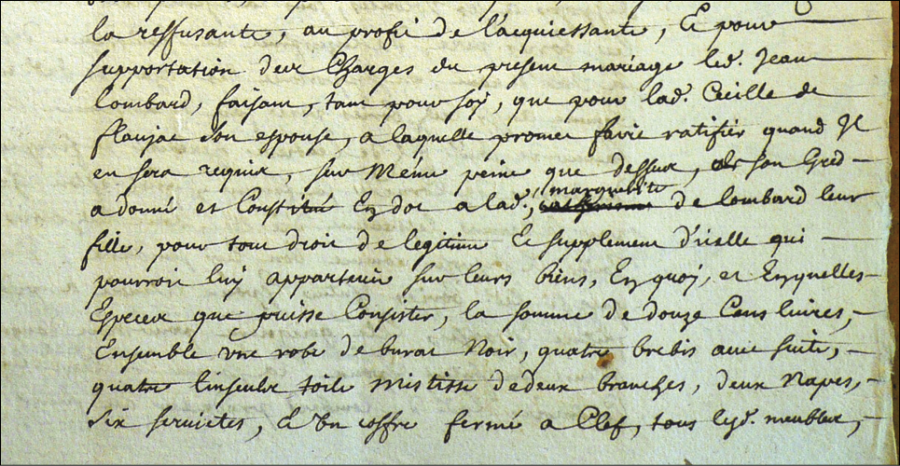 la reffusante, au profit de l'acquiessante, Et pour
supportation des Charges du present mariage led. Jean
Lombard, faisant, tant pour soy, que pour lad. Cecille de
flaujac son espouse, a laquelle promet faire ratifier quand Il
en sera requis, sur Meme peine que dessus, de son Gred
a donné et Constitué En dot a lad., marguerite de lombard leur
fille, pour tout droit de legitime Et supplement d'icelle qui
pourroit luy appartenir sur leurs biens, En quoy, et En quelles
Especes que puisse Consister, la somme de douze Cens livres,
Ensemble une robe de burat Noir, quatre brebis avec suite,
quatre linseulx toile Mistisse de deux branches, deux Napes,
Six serviettes, Et Un coffre fermé a Clef, tous lesd. meubles,